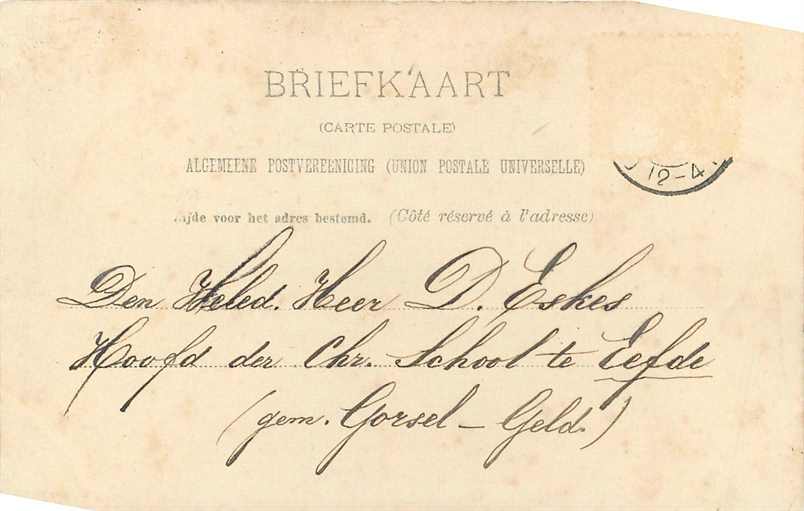 BRIEFKAART
(CARTE POSTALE)
ALGEMEENE POSTVEREENIGING (UNION POSTALE UNIVERSELLE)
ijde voor het adres bestemd. (Côté réservé à l'adresse)
12-4
Den Weled. Heer D. Eskes
Hoofd der Chr. School te Eefde
(gem. Gorsel - Geld.)